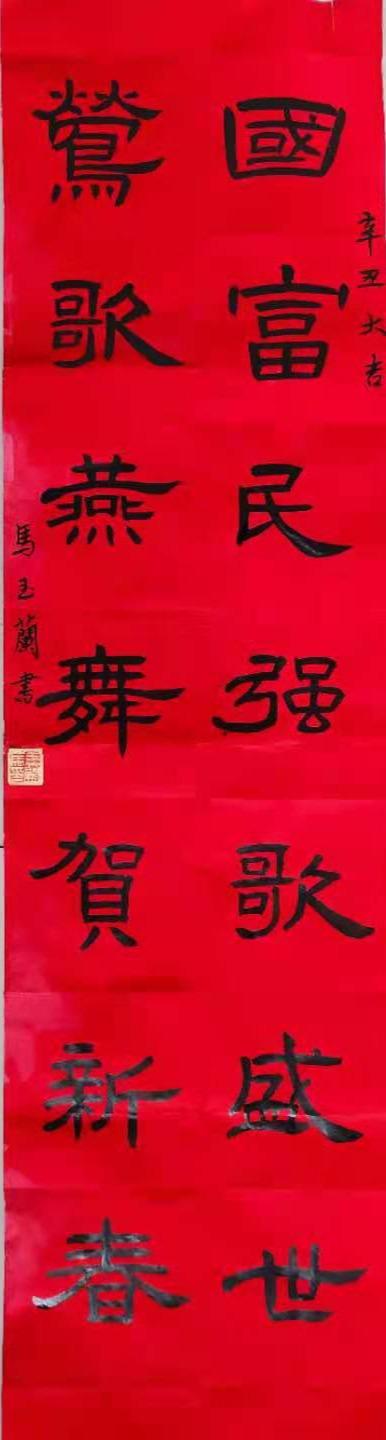 辛丑大吉
國富民强歌盛世
鶯歌燕舞賀新春
馬玉蘭書